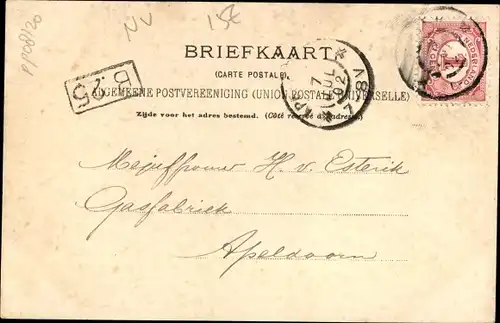 NV
15€
BRIEFKAART
(CARTE POSTALE)
ALGEMEENE POSTVEREENIGING (UNION POSTALE UNIVERSELLE)
Zijde voor het adres bestemd. (Côté réservé à l'adresse.)
NEDERLAND
7
JUL
02
8V
Mejuffrouw H. v. Esterik
Gasfabriek
Apeldoorn